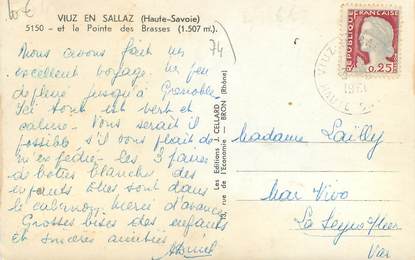 VIUZ EN SALLAZ (Haute-Savoie)
5150 - et la Pointe des Brasses (1.507 m.).
74
Nous avons fait un
excellent voyage. Un peu
de pluie jusqu'à Grenoble.
Ici tout est vert et
calme. Vous serait il
possible s'il vous plait de
m'expédier les 3 paires
de bottes blanches des
enfants. Elles sont dans
le cabanon, merci d'avance
Grosses bises des enfants
et sincères amitiés
Les Editions J. CELLARD
rue de l'Economie - BRON (Rhône)
REPUBLIQUE FRANÇAISE
0,25
VIUZ
1961
Madame Lailly
Mar Vivo
La Seyne s/mer
Var